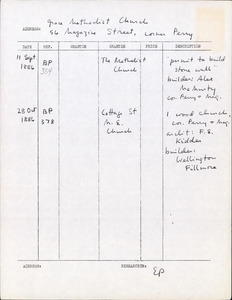 Grace Methodist Church
ADDRESS: 56 Magazine Street, corner Perry
DATE REF. GRANTOR GRANTEE PRICE DESCRIPTION
11 Sept BP The Methodist permit to build
1886 354 Church stone wall
builder: Alex
McMurtry
cor. Perry + Mag.
28 Oct BP Cottage St 1 wood church,
1886 378 M. E. cor. Perry + Mag.
Church archit: F. E.
Kidder
builder:
Wellington
Fillmore
ADDRESS: RESEARCHER:
EP